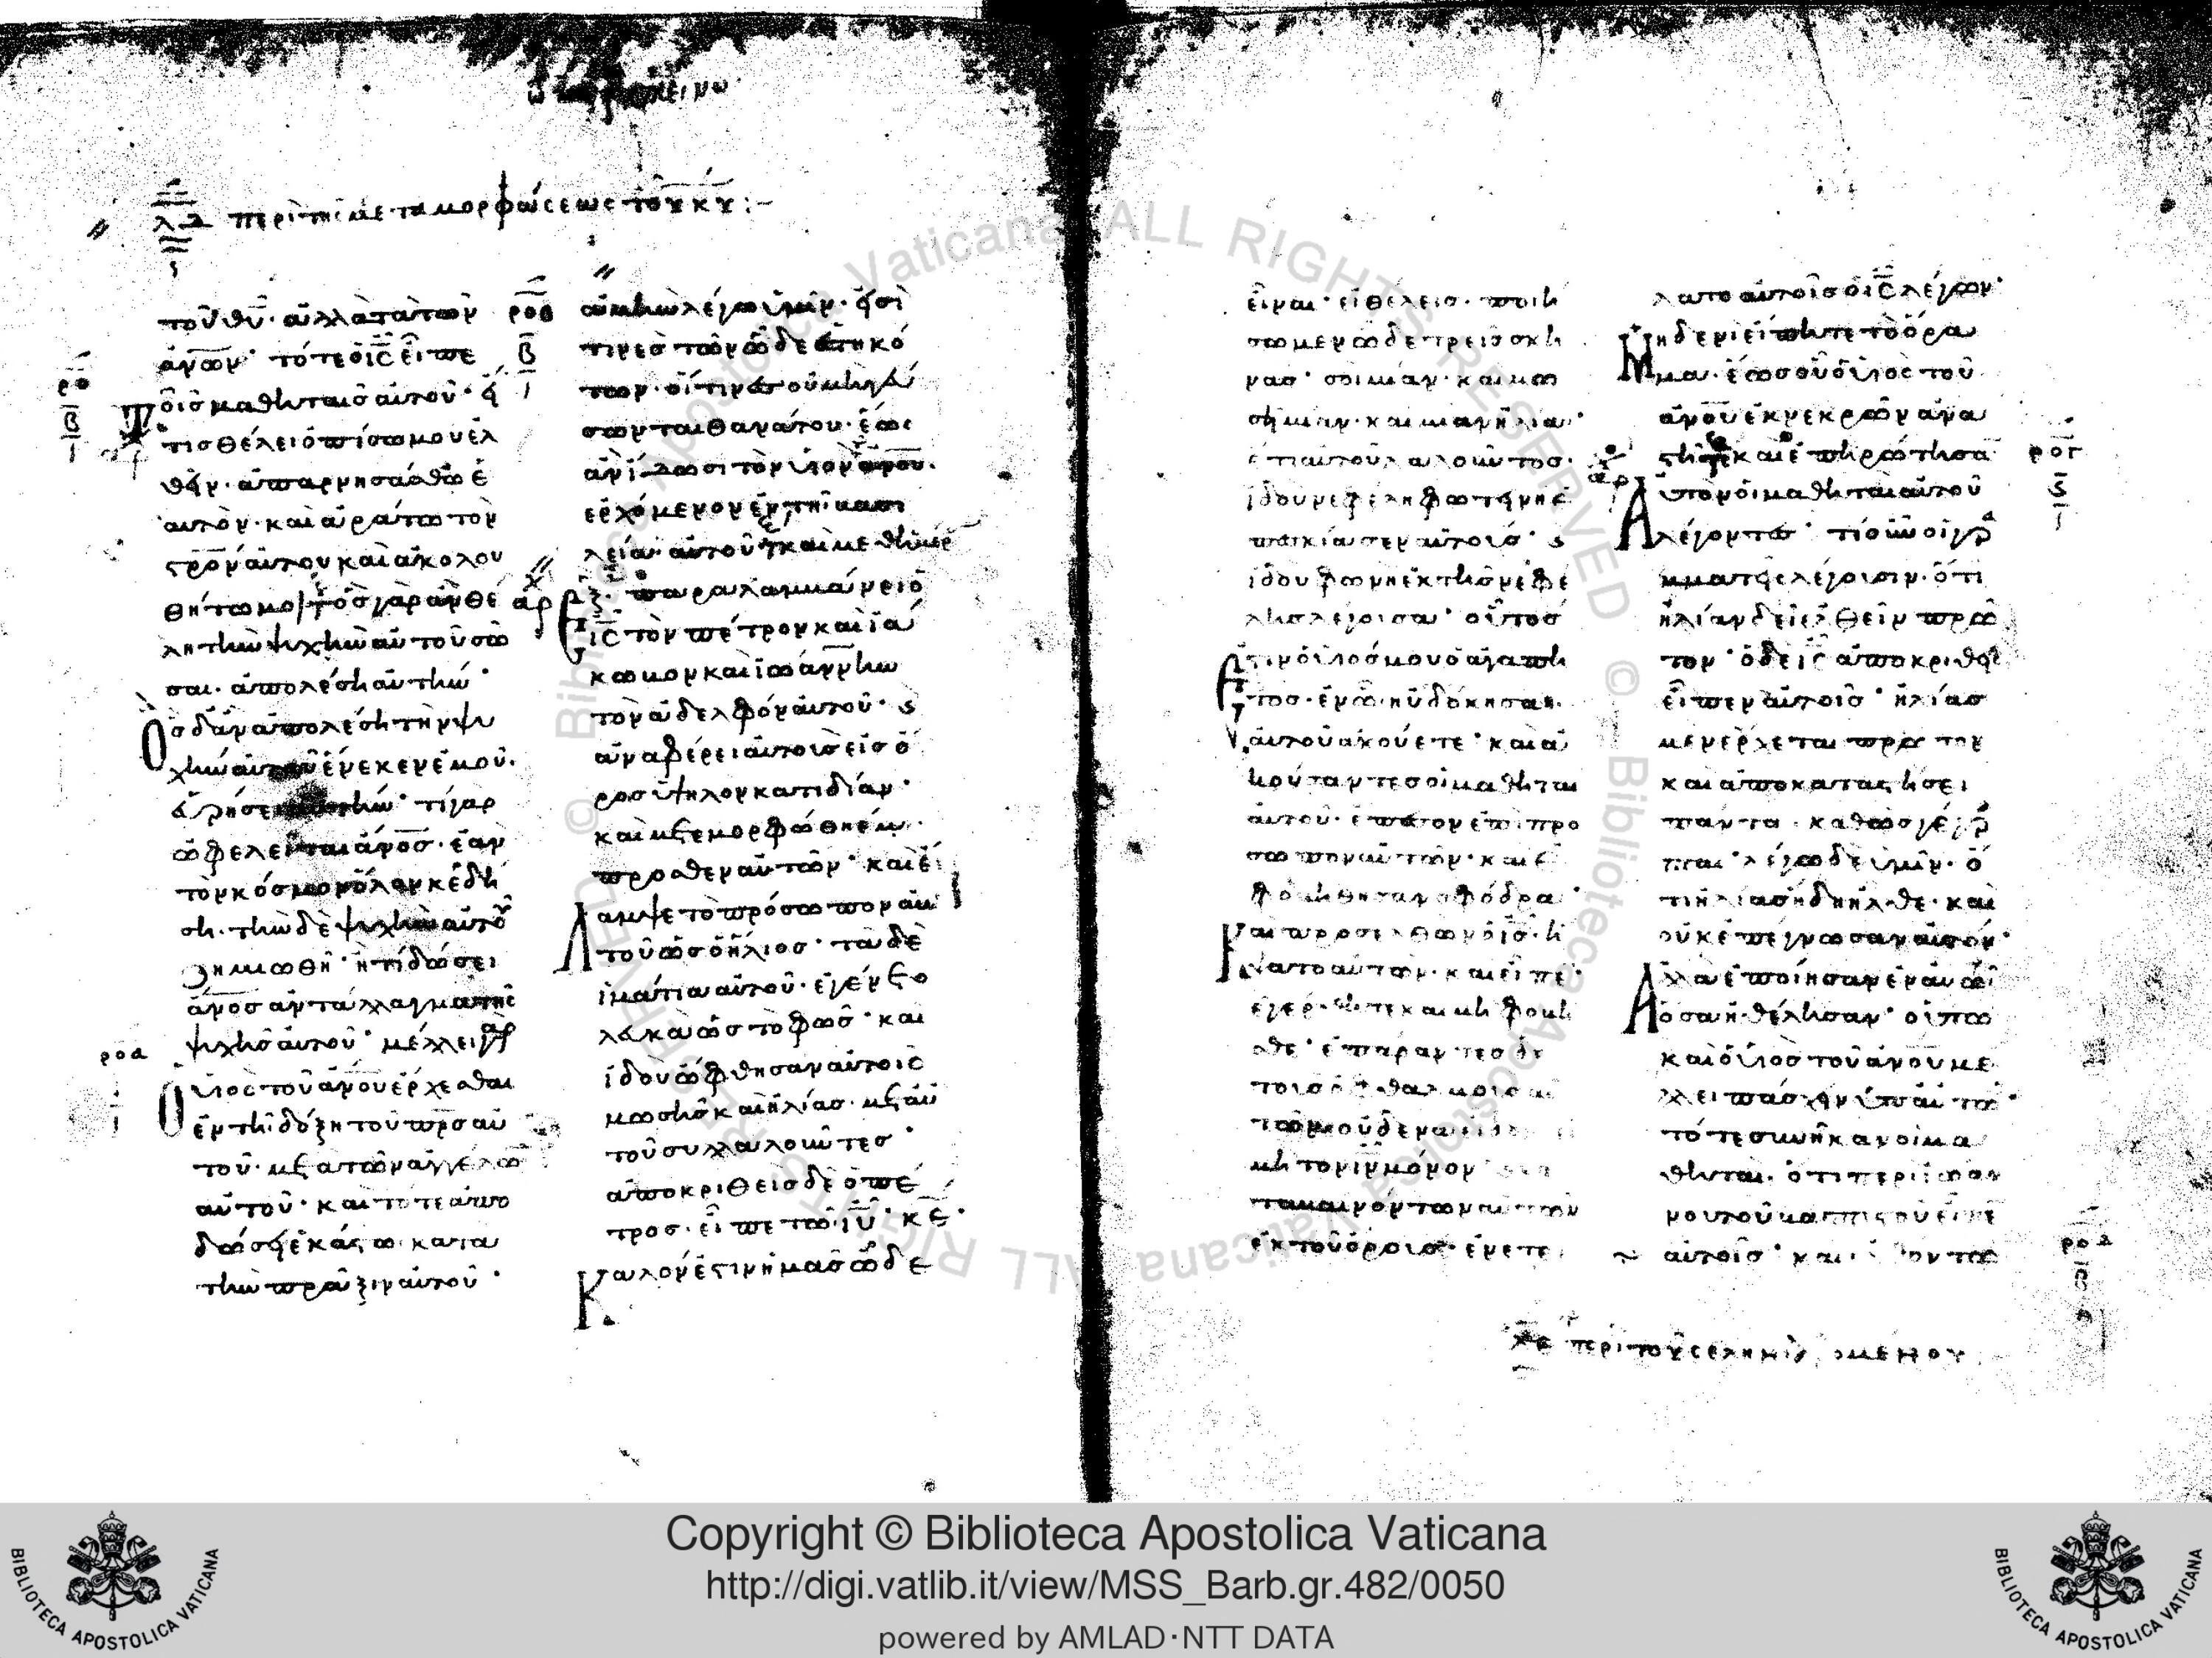 λδ περι της μεταμορφώσεως του κυ :-
του θυ· ἀλλὰ τὰ τῶν
ἀνων· τότε ὁ ις εἶπε
τοῖς μαθηταῖς αὐτοῦ· εἴ
τις θέλει ὀπίσω μου ἐλ
θεῖν· ἀπαρνησάσθω ἑ
αυτὸν· καὶ ἀράτω τὸν
στρον αὐτου καὶ ἀκολου
θήτω μοι ὃς γὰρ ἂν θέ
λη τὴν ψυχὴν αὐτοῦ σῶ
σαι· ἀπολέσει αὐτήν·
Ὃς δ' ἂν ἀπολέση τὴν ψυ
χὴν αὐτοῦ ἕνεκεν ἐμοῦ·
εὑρήσει αὐτήν· τί γαρ
ὠφελεῖται ἄνος· ἐὰν
τὸν κόσμον ὅλον κερδή
ση· τὴν δὲ ψυχὴν αὐτοῦ
ζημιωθῆ· ἢ τί δώσει
ἄνος ἀντάλλαγμα τῆς
ψυχῆς αὐτοῦ· μέλλει γὰρ
Ὁ υἱὸς τοῦ ἀνου ἔρχεσθαι
ἐν τῆ δόξη τοῦ πρς αὐ
τοῦ· μετὰ τῶν ἀγγέλων
αὐτοῦ· καὶ τότε ἀπο
δώσει ἑκάστω κατα
τὴν πρᾶξιν αὐτοῦ·
ροα
ρο
β
ροβ
β
ἀμὴν λέγω ὑμῖν· εἰσὶ
τινες τῶν ὧδε ἑστηκό
των· οἵτινες οὐ μὴ γεύ
σωνται θανάτου· ἕως
ἂν ἴδωσι τὸν υἱὸν τοῦ ἀνου·
ἐρχόμενον ἐν τῆ βασι
λεία αὐτοῦ καὶ μεθ' ἡμέρ
ἓξ· παραλαμβάνει ὁ
ις τὸν πέτρον καὶ ἰά
κωβον καὶ ἰωάννην
τὸν ἀδελφὸν αὐτοῦ· καὶ
ἀναφέρει αὐτοὺς εἰς ὄ
ρος ὑψηλον κατιδίαν·
καὶ μετεμορφώθη ἔμ
προσθεν αὐτῶν· καὶ ἔ
λαμψε τὸ πρόσωπον αὐ
τοῦ ὡς ὁ ἥλιος· τὰ δὲ
ἱμάτια αὐτοῦ· ἐγένετο
λευκὰ ὡς τὸ φῶς· και
ἰδοὺ ὤφθησαν αὐτοῖς
μωσῆς καὶ ἠλίας· μετ' αὐ
τοῦ συλλαλοῦντες·
ἀποκριθεὶς δὲ ὁ πέ
τρος· εἶπε τῶ ιυ· κε·
Καλόν ἐστιν ἡμᾶς ὧδε
εἶναι· εἰ θέλεις· ποιή
σωμεν ὧδε τρεῖς σκη
νας· σοὶ μίαν· καὶ μω
σῆ μίαν· καὶ μίαν ἠλία·
ἔτι αὐτοῦ λαλοῦντος·
ἰδοὺ νεφέλη φωτεινὴ ἐ
πεσκίασεν αὐτούς· καὶ
ἰδοὺ φωνὴ ἐκ τῆς νεφέ
λης λέγουσα· οὗτός
Ἐστιν ὁ υἱός μου ὁ ἀγαπη
τος· ἐν ὧ ηὐδόκησα·
αὐτοῦ ἀκούετε· καὶ ἀ
κούσαντες οἱ μαθηται
αὐτοῦ· ἔπεσον ἐπι προ
σωπον αὐτῶν· καὶ ἐ
φοβήθησαν σφόδρα·
Και προσελθὼν ὁ ις· ἥ
ψατο αὐτῶν· καὶ εἶπε·
ἐγέρθητε καὶ μὴ φοβεῖ
σθε· ἐπάραντες δὲ
τοὺς ὀφθαλμοὺς αὐ
τῶν οὐδένα εἶδον εἰ
μὴ τὸν ιν μόνον· και
καταβαινόντων αὐτῶν
ἐκ τοῦ ὄρους· ἐνετεί
λατο αὐτοῖς ὁ ις λέγων·
Μηδενὶ εἴπητε τὸ ὅρα
μα· ἕως οὗ ὁ υἱὸς τοῦ
ἀνου ἐκ νεκρῶν ἀνα
στῆ καὶ ἐπηρώτησα
ν αὐτὸν οἱ μαθηταὶ αὐτοῦ
λέγοντες· τί οὖν οἱ γρα
μματεῖς λέγουσιν· ὅτι
ἠλίαν δεῖ ἐλθεῖν πρῶ
τον· ὁ δὲ ις ἀποκριθεὶς
εἶπεν αὐτοῖς· ἠλίας
μὲν ἔρχεται πρῶτον
καὶ ἀποκαταστήσει
πάντα· καθὼς γέγρα
πται· λέγω δὲ ὑμῖν· ὅ
τι ἠλίας ἤδη ἦλθε· καὶ
οὐκ ἐπέγνωσαν αὐτόν·
Ἀλλὰ ἐποίησαν ἐν αὐτῶ
ὅσα ἠθέλησαν· οὕτω
καὶ ὁ υἱὸς τοῦ ἀνου μέ
λλει πάσχειν ὑπ' αὐτῶν·
τότε συνῆκαν οἱ μα
θηταὶ· ὅτι περὶ ἰωάν
νου τοῦ βαπτιστοῦ εἶπεν
αὐτοῖς· καὶ ἐλθόντων
ρογ
ροδ
λε περὶ τοῦ σεληνιαζομένου
Copyright © Biblioteca Apostolica Vaticana
http://digi.vatlib.it/view/MSS_Barb.gr.482/0050
powered by AMLAD·NTT DATA
BIBLIOTECA APOSTOLICA VATICANA
BIBLIOTECA APOSTOLICA VATICANA